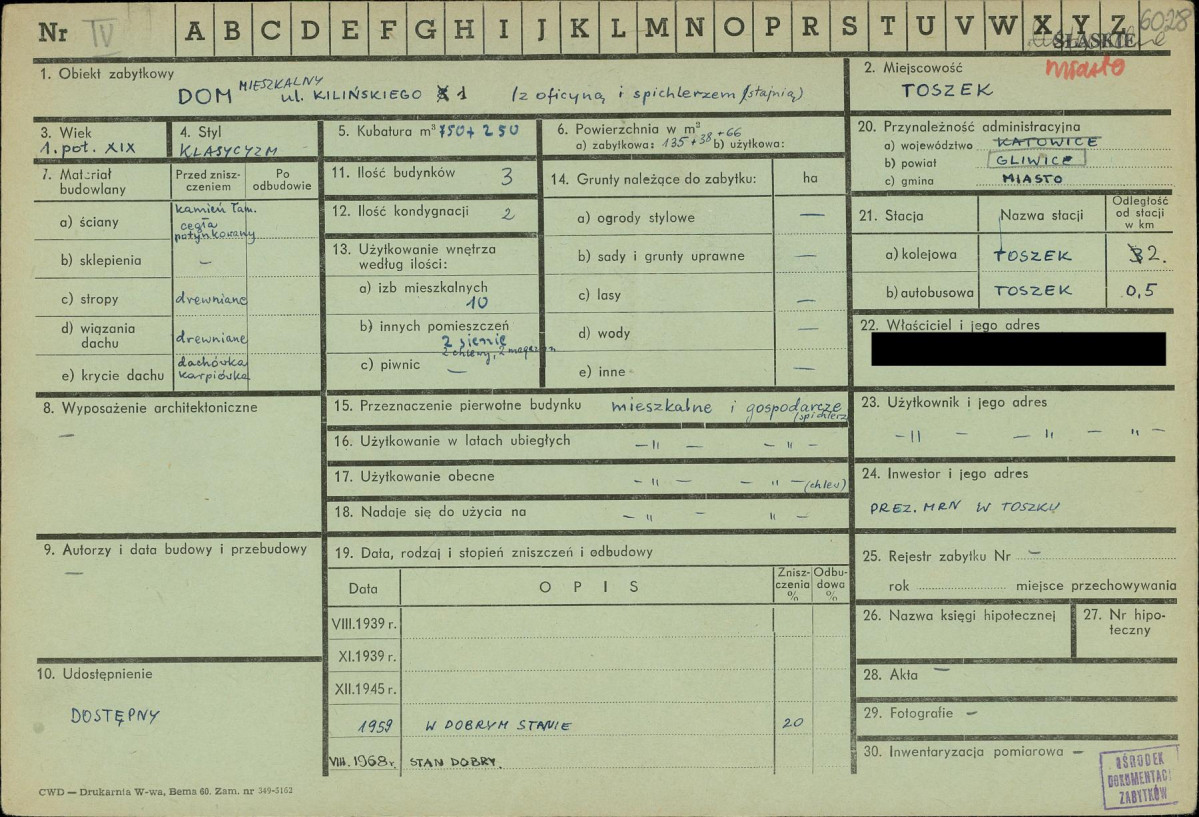 Nr IV A B C D E F G H I J K L M N O P R S T U V W X Y Z 6028
ŚLĄSKIE
miasto
1. Obiekt zabytkowy
DOM MIESZKALNY
ul. KILIŃSKIEGO 1 (z oficyną i spichlerzem /stajnią)
2. Miejscowość
TOSZEK
3. Wiek
1. pot. XIX
4. Styl
KLASYCYZM
5. Kubatura m³ 750 + 250
6. Powierzchnia w m²
a) zabytkowa: 135+38+66 b) użytkowa:
20. Przynależność administracyjna
a) województwo KATOWICE
b) powiat GLIWICE
c) gmina MIASTO
7. Materiał budowlany
Przed zniszczeniem
Po odbudowie
a) ściany kamień łam. cegła potynkowany
b) sklepienia –
c) stropy drewniane
d) wiązania dachu drewniane
e) krycie dachu dachówka karpiówka
11. Ilość budynków 3
12. Ilość kondygnacji 2
13. Użytkowanie wnętrza
według ilości:
a) izb mieszkalnych
10
b) innych pomieszczeń
2 sienie
2 chlewy, 2 magazyn
c) piwnic –
14. Grunty należące do zabytku: ha
a) ogrody stylowe –
b) sady i grunty uprawne –
c) lasy –
d) wody –
e) inne –
21. Stacja Nazwa stacji Odległość od stacji w km
a) kolejowa TOSZEK 2.
b) autobusowa TOSZEK 0,5
22. Właściciel i jego adres
8. Wyposażenie architektoniczne
–
15. Przeznaczenie pierwotne budynku mieszkalne i gospodarcze
(spichlerz
16. Użytkowanie w latach ubiegłych – " – – " –
17. Użytkowanie obecne – " – – " – (chlew)
18. Nadaje się do użycia na – " – " –
23. Użytkownik i jego adres
– " – – " – " –
24. Inwestor i jego adres
PREZ. MRN W TOSZKU
9. Autorzy i data budowy i przebudowy
–
19. Data, rodzaj i stopień zniszczeń i odbudowy
Data OPIS Zniszczenia % Odbudowa %
VIII.1939 r.
XI.1939 r.
XII.1945 r.
1959 W DOBRYM STANIE 20
VIII.1968 r. STAN DOBRY.
25. Rejestr zabytku Nr –
rok miejsce przechowywania
26. Nazwa księgi hipotecznej
27. Nr hipoteczny
28. Akta –
29. Fotografie –
30. Inwentaryzacja pomiarowa –
10. Udostępnienie
DOSTĘPNY
OŚRODEK
DOKUMENTACJI
ZABYTKÓW
CWD — Drukarnia W-wa, Bema 60. Zam. nr 349-5162